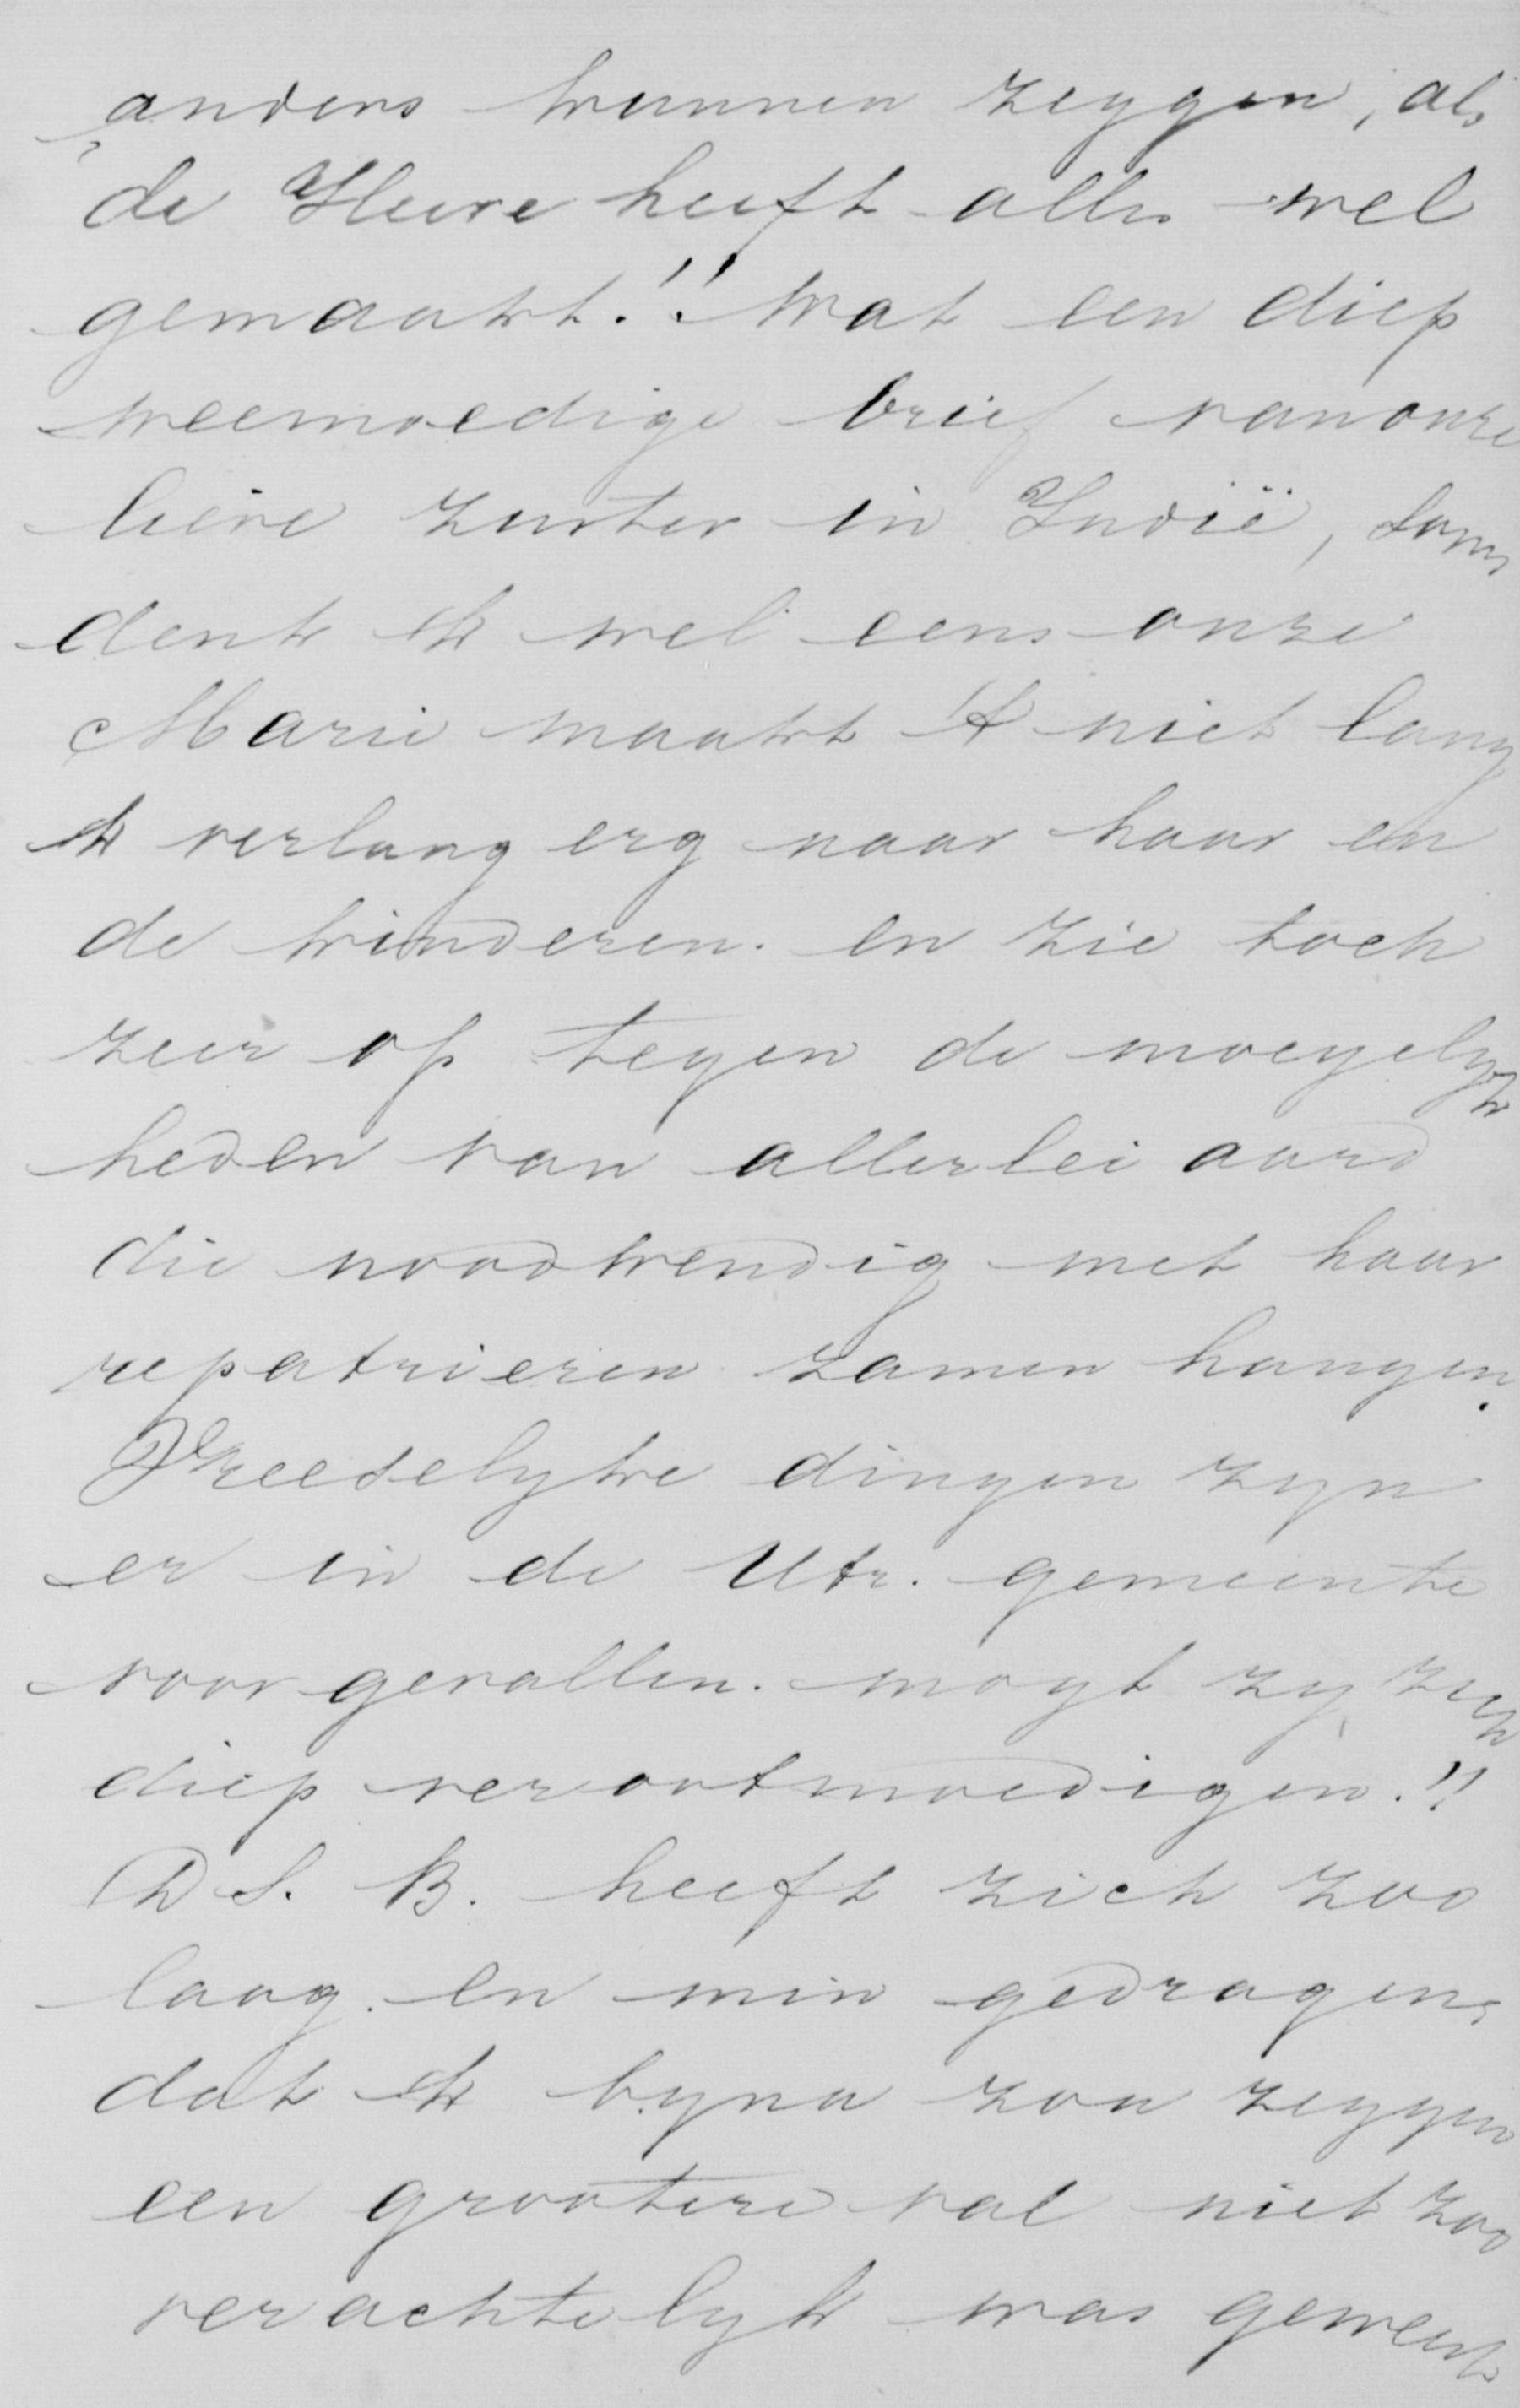 anders kunnen zeggen, als
de Heere heeft alles wel
gemaakt!! Wat een diep
weemoedige brief van onze
lieve zuster in Indië, soms
denk ik wel eens onze
Marie maakt 't niet lang
ik verlang erg naar haar en
de kinderen. en zie toch
zeer op tegen de moeyelyk
heden van allerlei aard
die noodwendig met haar
repatrieren zamen hangen.
Vreeselyke dingen zyn
er in de Utr. gemeente
voor gevallen. mogt zy zich
diep verootmoedigen!!
DS. B. heeft zich zoo
laag en min gedragen,
dat ik byna zou zeggen
een grootere val niet zoo
verachtelyk was geweest